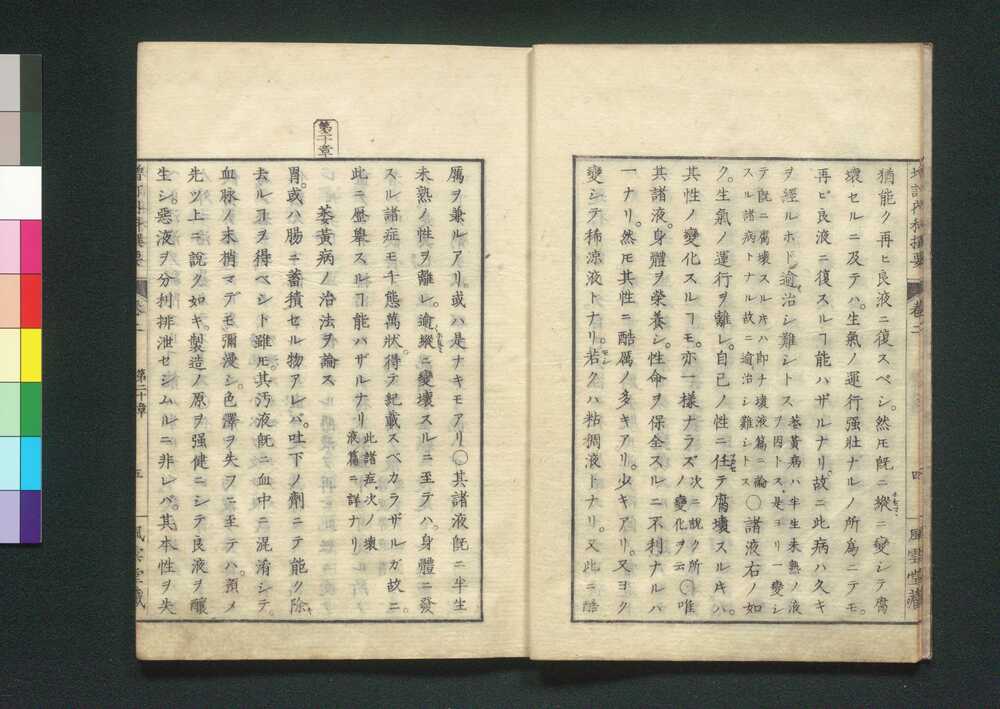 増訂内科撰要 巻二 四 風雲堂藏
猶能ク再ヒ良液ニ復スベシ。然モ旣ニ縱ニ變シテ腐
壞セルニ及テハ。生氣ノ運行强壯ナルノ所爲ニテモ。
再ビ良液ニ復スルヿ能ハザルナリ。故ニ此病ハ久キ
ヲ經ルホド逾治シ難シトス 萎黃病ハ半生未熟ノ液ヲ因トス是ヨリ一變シ
テ旣ニ腐壞スル寸ハ卽ナ壞液篇ニ論スル諸病トナル故ニ逾治シ難シトス 〇諸液右ノ如
ク。生氣ノ運行ヲ離レ。自己ノ性ニ任テ腐壞スル片ハ。
其性ノ變化スルヿモ。亦一樣ナラズ 次ニ說ク所ノ變化ヲ云 〇唯
其諸液。身體ヲ榮養シ。性命ヲ保全スルニ不利ナルハ
一ナリ。然モ其性ニ酷厲ノ多キアリ。少キアリ。又ヨク
變シテ稀凉液トナリ。若クハ粘稠液トナリ。又此ニ酷
厲ヲ兼ルアリ。或ハ是ナキモアリ〇其諸液旣ニ半生
未熟ノ性ヲ離レ。逾縱ニ變壞スルニ至テハ。身體ニ發
スル諸症モ千態萬狀。得テ記載スベカラザルガ故ニ。
此ニ歷舉スルヿ能ハザルナリ 此諸症。次ノ壞液篇ニ詳ナリ
第二十章
萎黃病ノ治法ヲ論ス
胃。或ハ腸ニ蓄積セル物アレバ。吐下ノ劑ニテ能ク除
去ルヿヲ得ベシト雖モ。其汚液旣ニ血中ニ混淆シテ。
血脉ノ末梢マデモ彌漫シ。色澤ヲ失フニ至テハ。預メ
先ツ上ニ說ク如キ。製造ノ原ヲ强健ニシテ良液ヲ釀
生シ。惡液ヲ分利排泄セシムルニ非レバ。其本性ヲ失
増訂内科撰要 巻二 第二十章 五 風雲堂藏